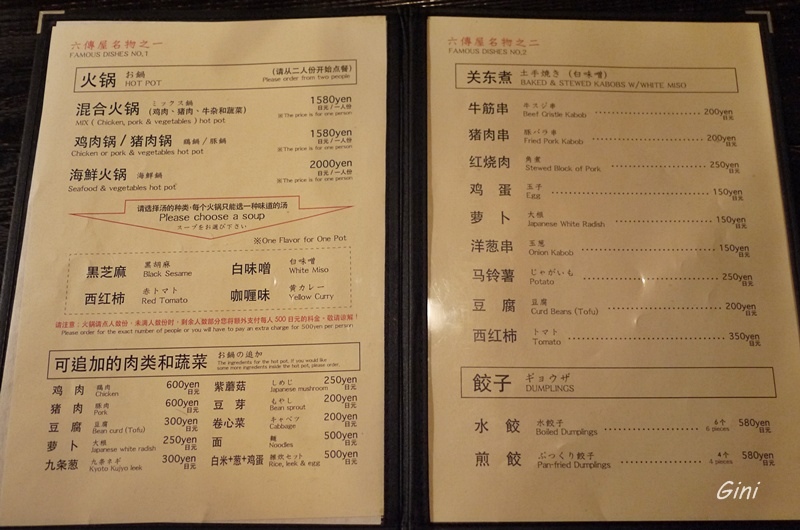 六傳屋名物之一
FAMOUS DISHES NO.1
火锅 お鍋 HOT POT
(请从二人份开始点餐)
Please order from two people
混合火锅 ミックス鍋 (鸡肉、猪肉、牛杂和蔬菜) 1580yen 日元/一人份
MIX ( Chicken, pork & vegetables ) hot pot ※The price is for one person
鸡肉锅 / 猪肉锅 鶏鍋／豚鍋 1580yen 日元/一人份
Chicken or pork & vegetables hot pot ※The price is for one person
海鲜火锅 海鮮鍋 2000yen 日元/一人份
Seafood & vegetables hot pot ※The price is for one person
请选择汤的种类,每个火锅只能选一种味道的汤
Please choose a soup
スープをお選び下さい
※One Flavor for One Pot
黑芝麻 黒胡麻 Black Sesame
白味噌 白味噌 White Miso
西红柿 赤トマト Red Tomato
咖喱味 黄カレー Yellow Curry
请注意：火锅请点人数份，未满人数份时，剩余人数部分您将额外支付每人500日元的料金，敬请谅解！
Please order for the exact number of people or you will have to pay an extra charge for 500yen per person
可追加的肉类和蔬菜 お鍋の追加
The ingredients for the hot pot. If you would like some more ingredients inside the hot pot, please order.
鸡肉 鶏肉 Chicken 600yen 日元
猪肉 豚肉 Pork 600yen 日元
豆腐 豆腐 Bean curd (Tofu) 300yen 日元
萝卜 大根 Japanese white radish 250yen 日元
九条葱 九条ネギ Kyoto Kujyo leek 300yen 日元
紫蘑菇 しめじ Japanese mushroom 250yen 日元
豆芽 もやし Bean sprout 200yen 日元
卷心菜 キャベツ Cabbage 200yen 日元
面 麺 Noodles 500yen 日元
白米+葱+鸡蛋 雑炊セット Rice, leek & egg 500yen 日元
六傳屋名物之二
FAMOUS DISHES NO.2
关东煮 土手焼き (白味噌)
BAKED & STEWED KABOBS W/WHITE MISO
牛筋串 牛スジ串 Beef Gristle Kabob 200yen 日元
猪肉串 豚バラ串 Fried Pork Kabob 200yen 日元
红烧肉 角煮 Stewed Block of Pork 250yen 日元
鸡蛋 玉子 Egg 150yen 日元
萝卜 大根 Japanese White Radish 150yen 日元
洋葱串 玉葱 Onion Kabob 150yen 日元
马铃薯 じゃがいも Potato 250yen 日元
豆腐 豆腐 Curd Beans (Tofu) 200yen 日元
西红柿 トマト Tomato 350yen 日元
餃子 ギョウザ DUMPLINGS
水餃 水餃子 Boiled Dumplings 6个 6 pieces 580yen 日元
煎餃 ぷっくり餃子 Pan-fried Dumplings 4个 4 pieces 580yen 日元
Gini